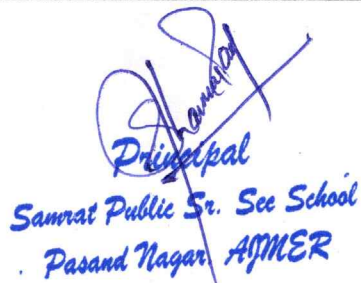 Principal
Samrat Public Sr. Sec School
Pasand Nagar AJMER